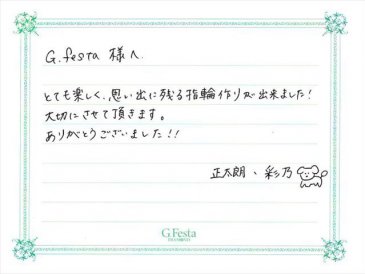 G.festa 様へ
とても楽しく、思い出に残る指輪作りが出来ました！
大切にさせて頂きます。
ありがとうございました！！
正太朗、彩乃
G.Festa
DIAMOND